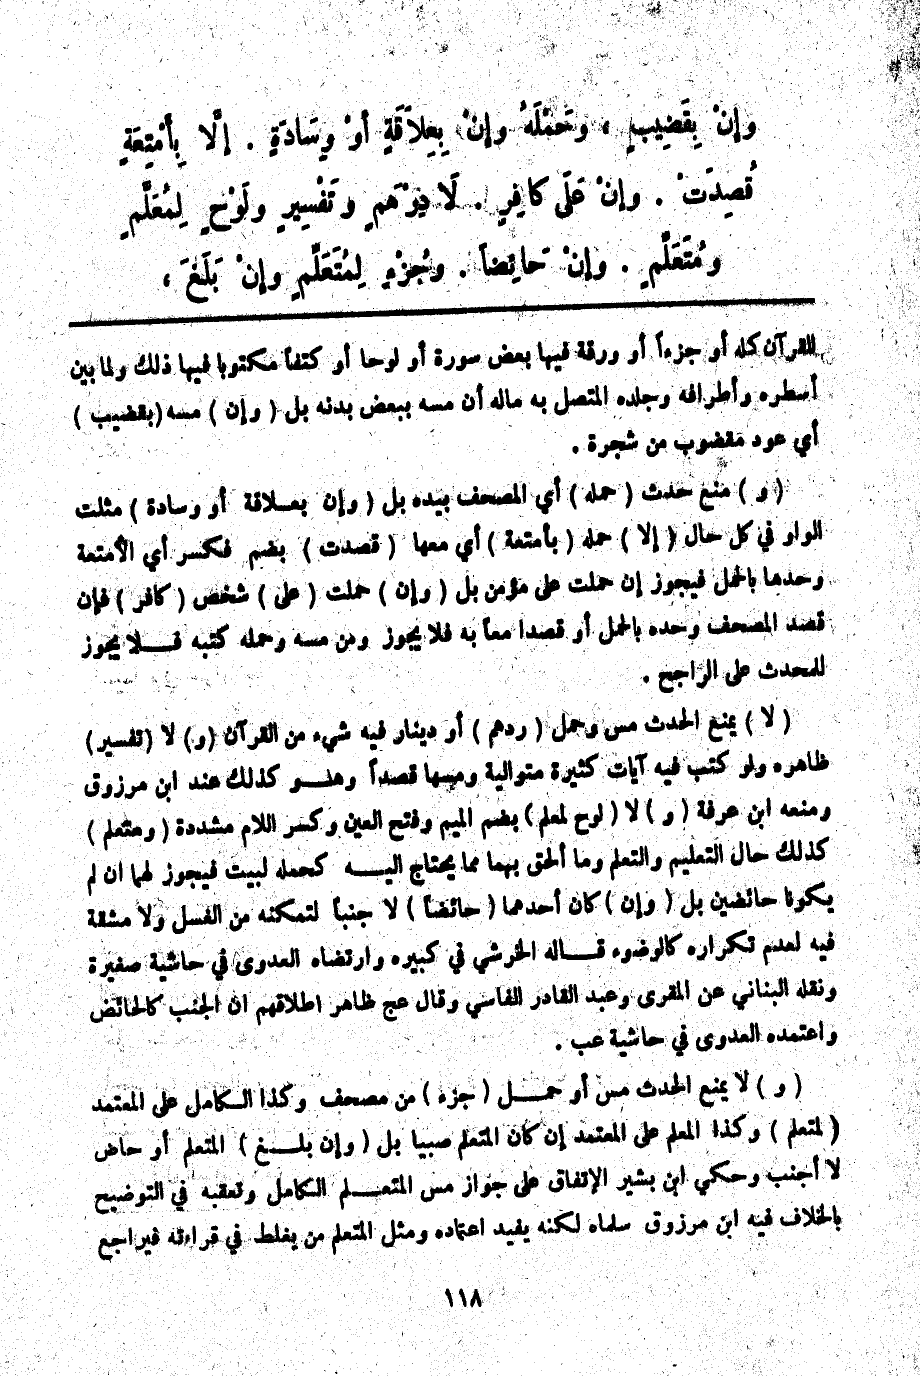 وإنْ بِقَضِيبٍ ، وَحَمْلَهُ وإنْ بِعِلاَقَةٍ أوْ وِسَادَةٍ . إلَّا بِأَمْتِعَةٍ
قُصِدَتْ . وإنْ عَلَى كافِرٍ . لَا دِرْهَمٍ وتَفْسِيرٍ ولَوْحٍ لِمُعَلِّمٍ
ومُتَعَلِّمٍ . وإنْ حَائِضاً . وجُزْءٍ لِمُتَعَلِّمٍ وإنْ بَلَغَ ،
القرآن كله أو جزءاً أو ورقة فيها بعض سورة أو لوحا أو كتفاً مكتوبا فيها ذلك ولما بين
أسطره وأطرافه وجلده المتصل به ماله أن مسه ببعض بدنه بل ( وإن ) مسه (بقضيب )
أي عود مقضوب من شجرة .
( و ) منع حدث ( حمله ) أي المصحف بيده بل ( وإن بعلاقة أو وسادة ) مثلت
الواو في كل حال ( إلا ) حمله ( بأمتعة ) أي معها ( قصدت ) بضم فكسر أي الأمتعة
وحدها بالحمل فيجوز إن حملت على مؤمن بل ( وإن ) حملت ( على ) شخص ( كافر ) فإن
قصد المصحف وحده بالحمل أو قصدا معاً به فلا يجوز ومن مسه وحمله كتبه فلا يجوز
للمحدث على الراجح .
( لا ) يمنع الحدث مس وحمل ( ردهم ) أو دينار فيه شيء من القرآن (و) لا (تفسير)
ظاهره ولو كتب فيه آيات كثيرة متوالية ومسها قصداً وهو كذلك عند ابن مرزوق
ومنعه ابن عرفة ( و ) لا ( لوح لمعلم ) بضم الميم وفتح العين وكسر اللام مشددة ( ومتعلم )
كذلك حال التعليم والتعلم وما ألحق بهما مما يحتاج اليه كحمله لبيت فيجوز لهما ان لم
يكونا حائضين بل ( وإن ) كان أحدهما ( حائضاً ) لا جنباً لتمكنه من الغسل ولا مشقة
فيه لعدم تكراره كالوضوء قاله الخرشي في كبيره وارتضاه العدوى في حاشية صغيرة
ونقله البناني عن المقرى وعبد القادر الفاسي وقال عج ظاهر اطلاقهم ان الجنب كالحائض
واعتمده العدوى في حاشية عب .
( و ) لا يمنع الحدث مس أو حمل ( جزء ) من مصحف وكذا الكامل على المعتمد
( لمتعلم ) وكذا المعلم على المعتمد إن كان المتعلم صبيا بل ( وإن بلغ ) المتعلم أو حاض
لا أجنب وحكي ابن بشير الإتفاق على جواز مس المتعلم الكامل وتعقبه في التوضيح
بالخلاف فيه ابن مرزوق سلماه لكنه يفيد اعتماده ومثل المتعلم من يغلط في قراءته فيراجع
١١٨